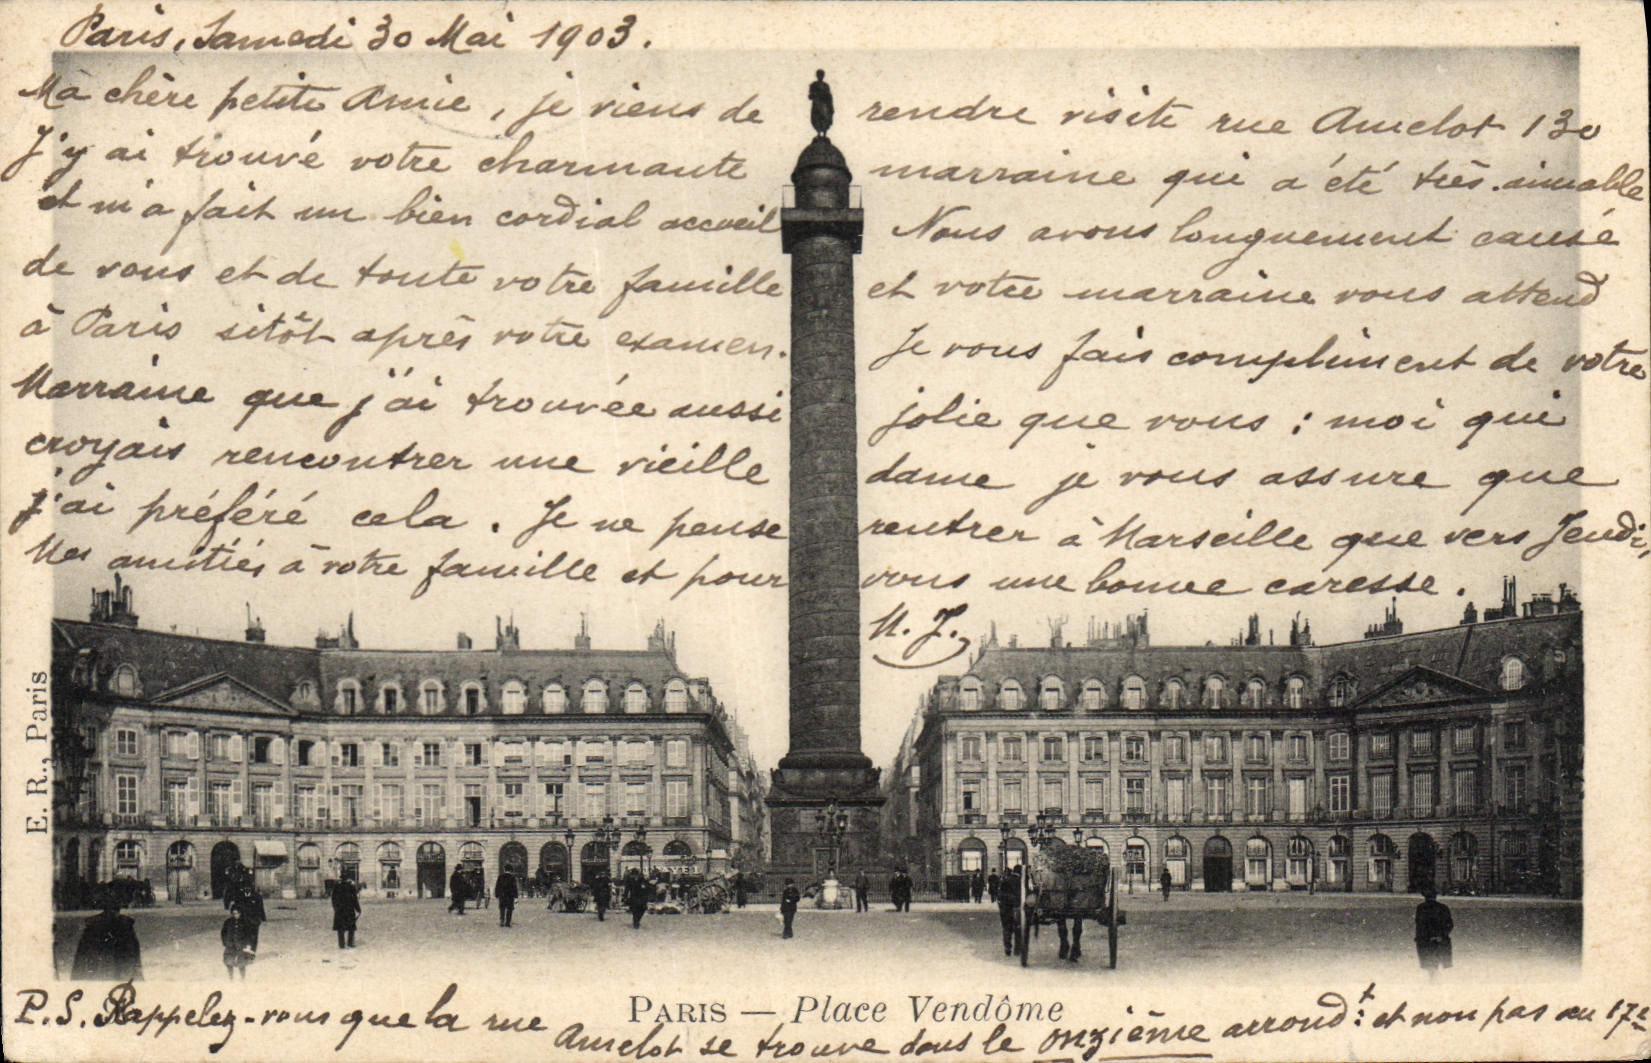 Paris, Samedi 30 Mai 1903.
Ma chère petite Amie, je viens de rendre visite rue Amelot 130
J'y ai trouvé votre charmante marraine qui a été très aimable
et m'a fait un bien cordial accueil Nous avons longuement causé
de vous et de toute votre famille et votre marraine vous attend
à Paris sitôt après votre examen. Je vous fais compliment de votre
Marraine que j'ai trouvée aussi jolie que vous : moi qui
croyais rencontrer une vieille dame je vous assure que
j'ai préféré cela. Je ne pense rentrer à Marseille que vers Jeudi,
Mes amitiés à votre famille et pour vous une bonne caresse.
M. J.
E. R., Paris
PARIS — Place Vendôme
P.S. Rappelez-vous que la rue Amelot se trouve dans le onzième arrondt: et non pas au 17e